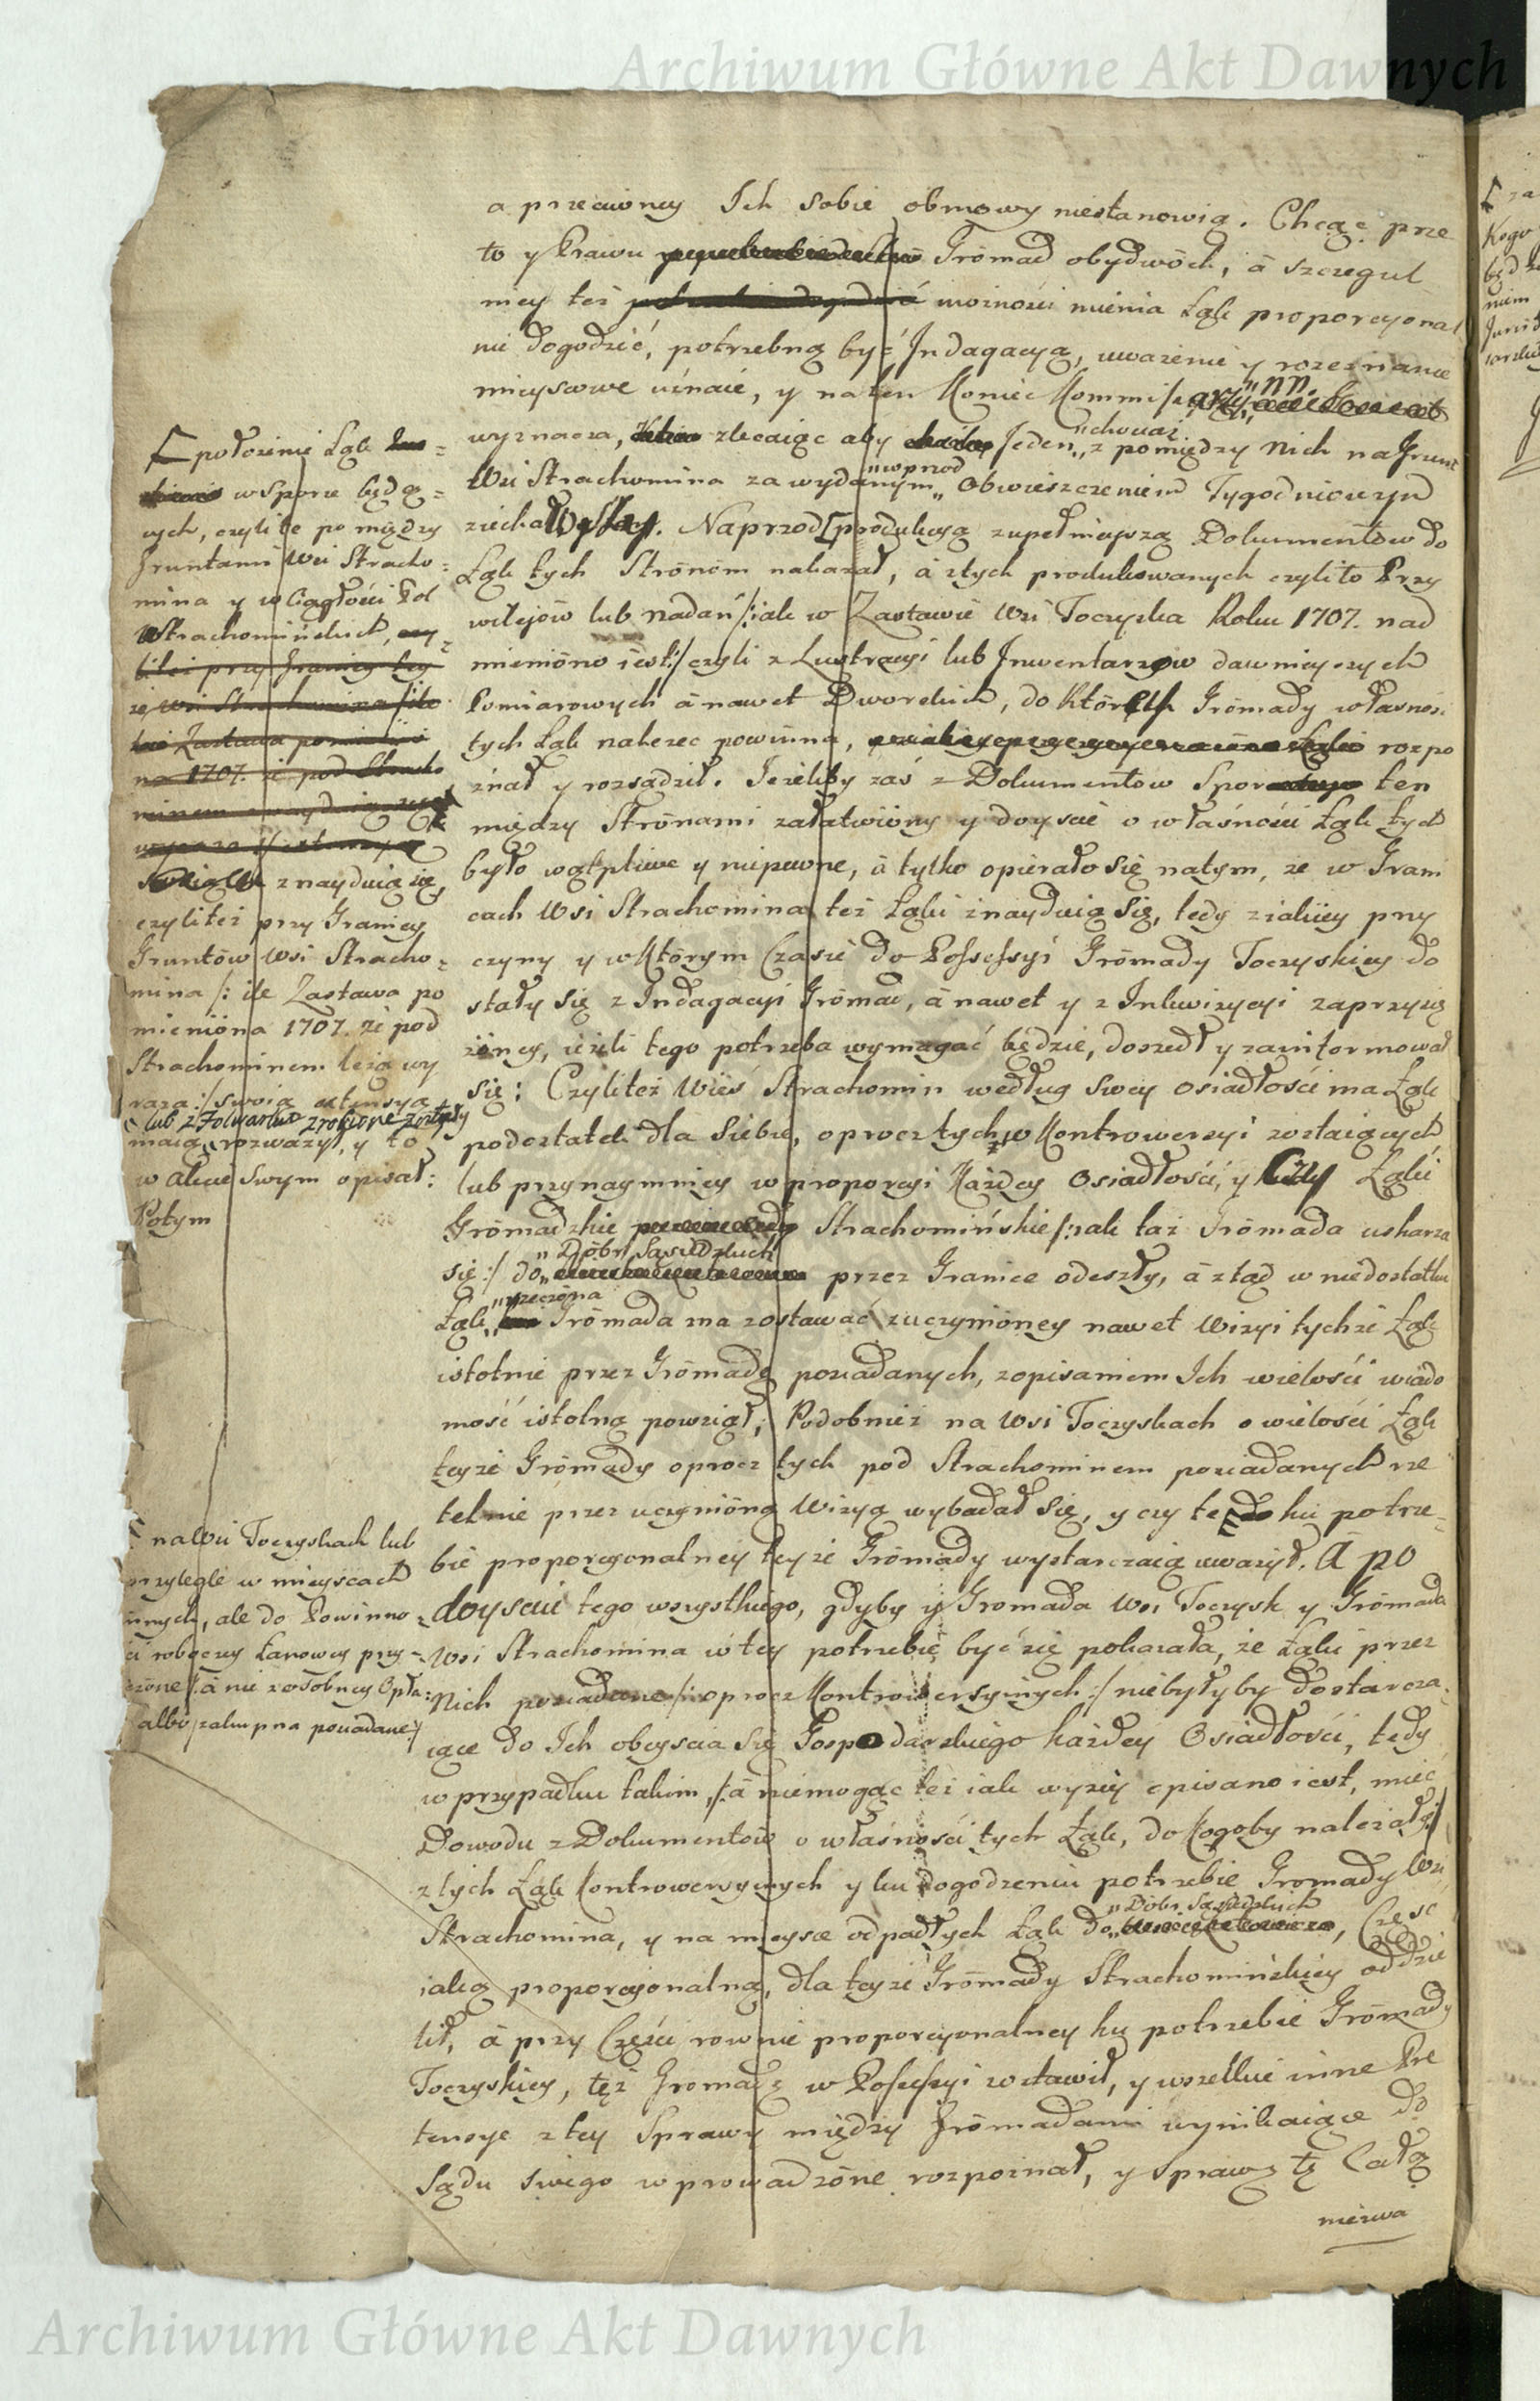 Archiwum Główne Akt Dawnych
a przeciwney Ich sobie obmowy niestanowią. Chcąc prze
to y Prawu Grómad obydwóch, á szczegul
niey też możności mienia Łąk proporcyonal
nie dogodzić, potrzebną być Jndagacyą, uważenie y rozeznanie
mieyscowe uznaie, y na ten Koniec Kommissarzy, NN.
wyznacza, zlecaiąc aby Jeden, chociaż z pomiędzy Nich na Grunt
Wsi Strachomina za wydanym wprzod Obwieszczeniem Tygodniowym
ziechał. Naprzod produkcyą zupełnieyszą Dokumentow do
Łąk tych Strónóm nakazał, á z tych produkowanych czyli to Przy
wilejów lub nadań /: iak w Zastawie Wsi Toczyska Roku 1707. nad
mienióno iest :/ czyli z Lustracyi lub Jnwentarzow dawnieyszych
Pomiarowych á nawet Dworskich, do których Grómady własnośc
tych Łąk należec powinna, rozpo
znał y rozsądził. Jeżeliby zaś z Dokumentow Spor ten
między Strónami załatwióny y doyscie o własnósci Łąk tych
było wątpliwe y niepewne, á tylko opierało się na tym, ze w Grani
cach Wsi Strachomina też Łąki znayduią się, tedy z iakiey przy
czyny y w którym Czasie do Possessyi Grómady Toczyskiey do
stały się z Indagacyi Grómad, á nawet y z Inkwizycyi zaprzysię
żoney, ieżeli tego potrzeba wymagać będzie, doszedł y zainformował
się: Czyliteż Wieś Strachomin według swey osiadłości ma Łąk
podostatek dla siebie, oprocz tych, w Kontrowersyi zostaiących,
lub przynaymniey w proporcyi Każdey Osiadłości, y Czy Łąki
Grómadzkie Strachomińskie /: iak taż Grómada uskarza
się :/ do Dóbr Sąsiedzkich przez Granice odeszły, á ztąd w niedostatku
Łąk, rzeczona Grómada ma zostawać, uczynióney nawet Wizyi tychże Łąk
istotnie przez Grómadę posiadanych, z opisaniem Ich wielości wiado
mość istotną powziął, Podobnież na Wsi Toczyskach o wielości Łąk
teyże Grómady oprocz tych pod Strachominem posiadanych rze
telnie przez uczynióną Wizyą wybadał się, y czy te ku potrze=
bie proporcyonalney teyże Grómady wystarczaią uważył. á po
doysciu tego wszystkiego, gdyby y Gromada Wsi Toczysk y Grómada
Wsi Strachomina w tey potrzebie być się pokazała, że Łąki przez
Nich posiadane /: oprocz Kontrowersyinych :/ niebyłyby dostarcza=
iące do Ich obeyscia się Gospodarskiego każdey Osiadłości, tedy
w przypadku takim, /: á niemogąc też iak wyżey opisano iest, mieć
Dowodu z Dokumentow o własnosci tych Łąk, do kogoby należały :/
z tych Łąk kontrowersyinych y ku dogodzeniu potrzebie Gromady Wsi
Strachomina, y na mieysce odpadłych Łąk do Dóbr Sąsiedzkich, Część
iaką proporcyonalną, dla teyże Grómady Strachomińskiey oddzie
lił, á przy Części rownie proporcyonalney ku potrzebie Grómady
Toczyskiey, też Gromadę w Possessyi zostawił, y wszelkie inne Pre
tensye z tey Sprawy między Grómadami wynikaiące do
Sądu swego wprowadzóne rozpoznał, y sprawę tę Całą
nieżwa
położenie Łąk
w sporze będą=
cych, czyli te pomiędzy
Gruntami Wsi Stracho=
mina y w Ciągłości Pol
Strachomińskich,
znayduią się,
czyliteż przy Granicy
Gruntów Wsi Stracho=
mina /: ile Zastawa po
mienióna 1707. że pod
Strachominem leżą wy
raża :/ swoią extensyą
lub z Folwarku zrobione zostały
maią, rozważył, y to
w akcie swym opisał:
Potym
na Wsi Toczyskach lub
przyległe w mieyscach
innych, ale do Powinno=
ści roboczey Łanowey przy=
łączóne /: á nie z osobney Opła=
albo zakupna posiadane :/
Archiwum Główne Akt Dawnych